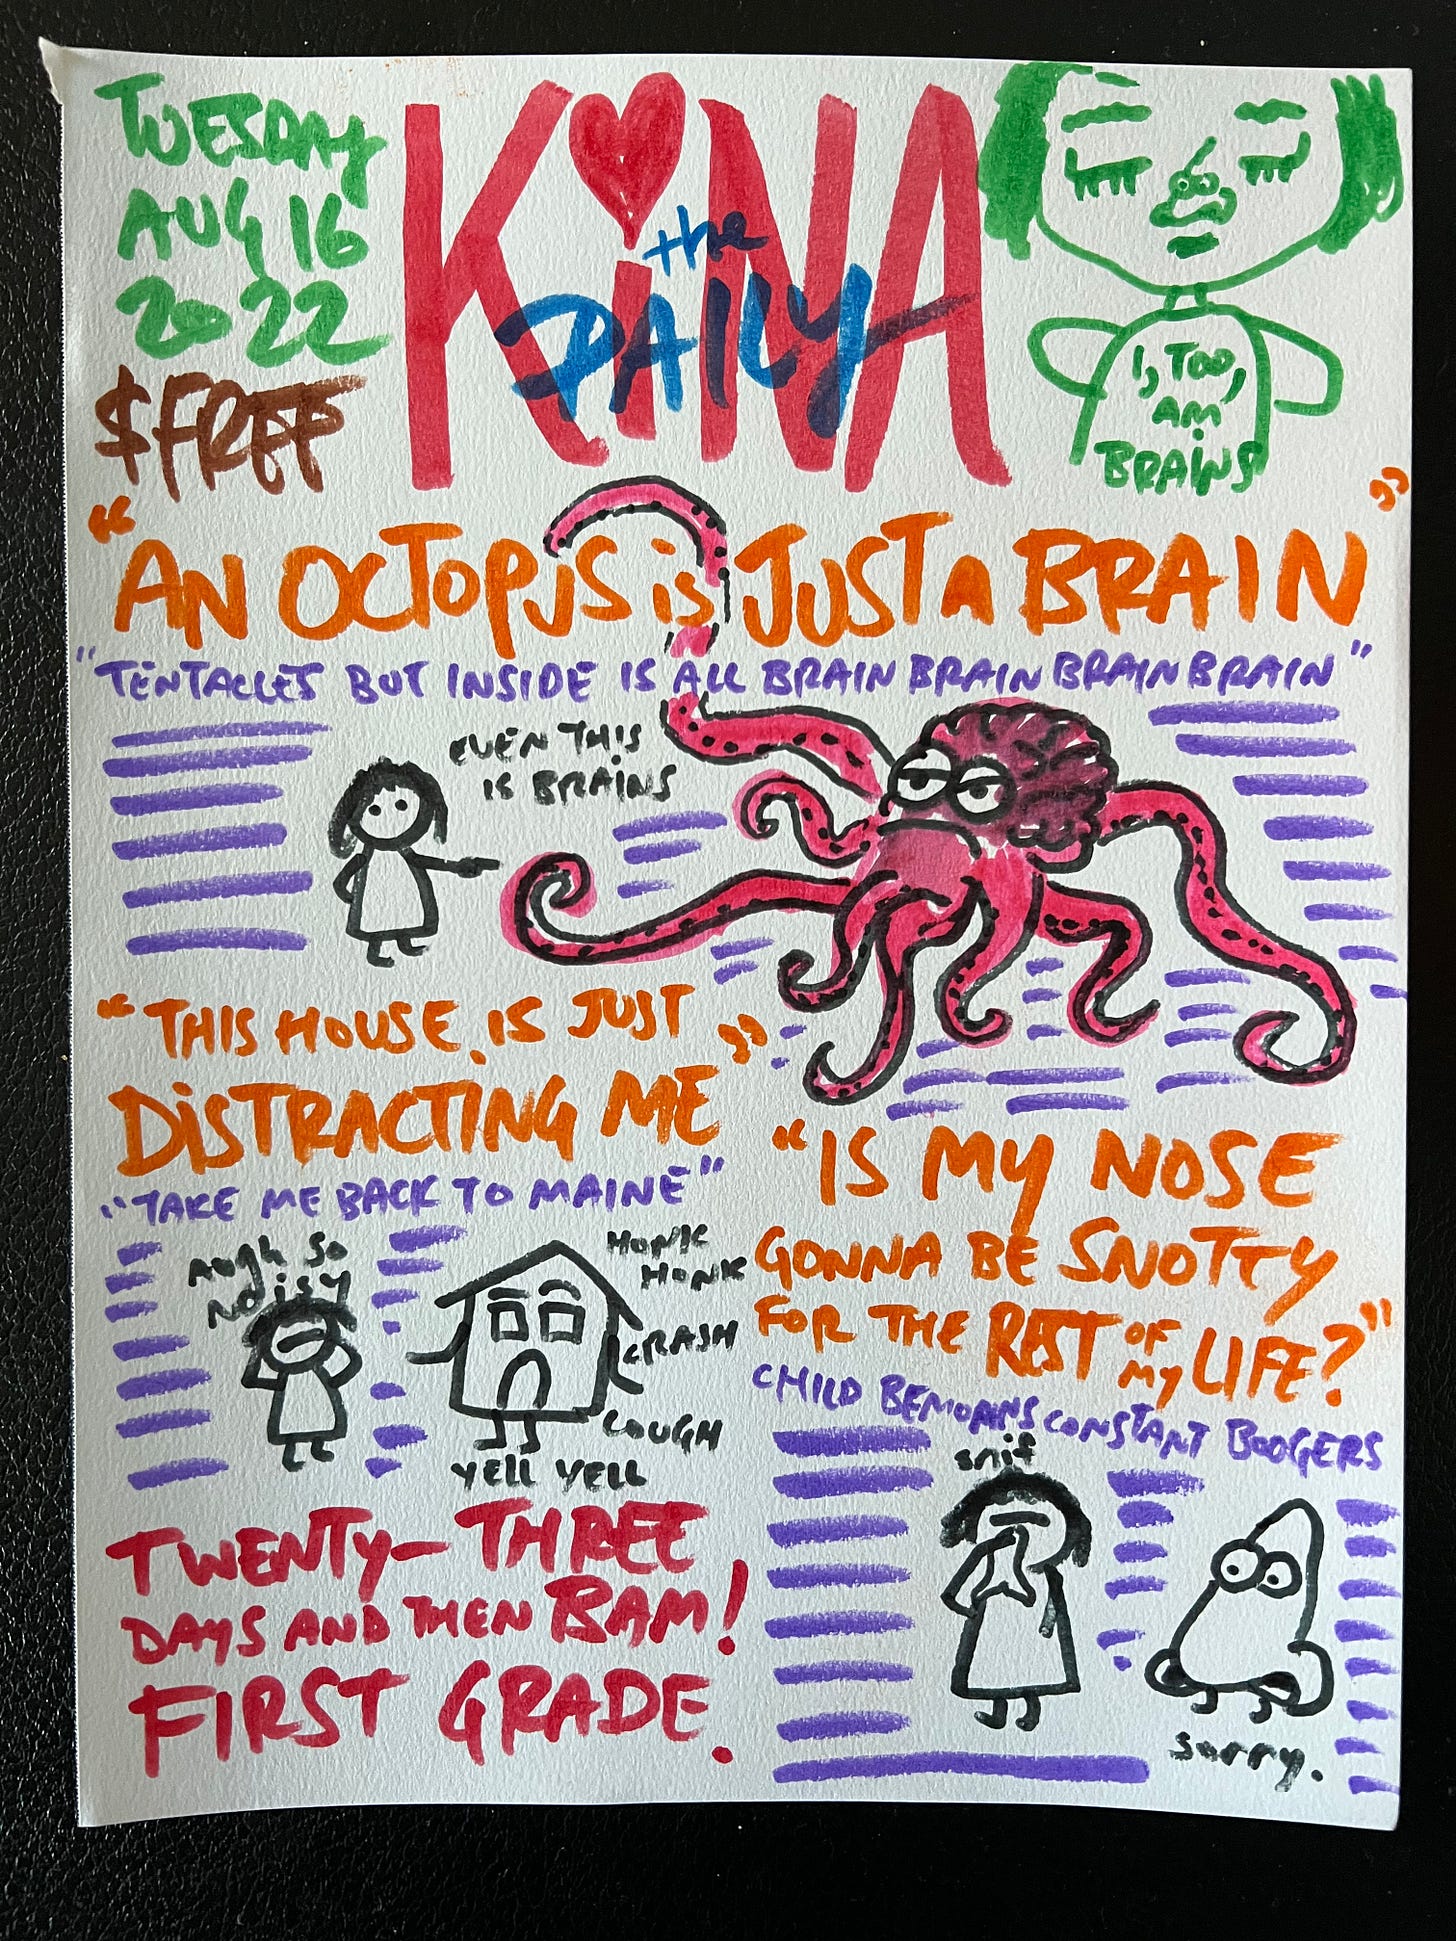 TUESDAY
AUG 16
2022
$FREE
KiNA
the
DAILY
I, TOO,
AM
BRAINS
"AN OCTOPUS is JUST A BRAIN"
"TENTACLES BUT INSIDE IS ALL BRAIN BRAIN BRAIN BRAIN"
EVEN THIS
IS BRAINS
"THIS HOUSE IS JUST
DiSTRACTING ME"
"TAKE ME BACK TO MAINE"
AUGH SO
NOISY
HONK
HONK
CRASH
COUGH
YELL YELL
"IS MY NOSE
GONNA BE SNOTTY
FOR THE REST OF MY LIFE?"
CHILD BEMOANS CONSTANT BOOGERS
snif
sorry.
TWENTY-THREE
DAYS AND THEN BAM!
FIRST GRADE.